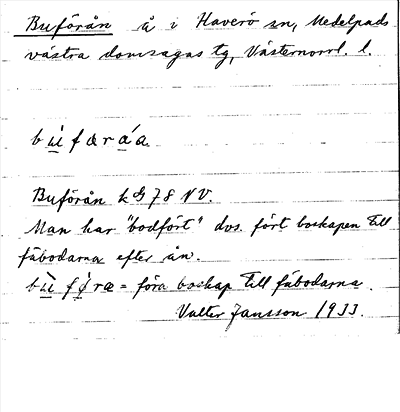 Buförån å i Haverö sn, Medelpads
västra domsagas tg, Västernorrl. l.
bùfœráa.
Buförån k G 78 NV.
Man har "bodfört" dvs. fört boskapen till
fäbodarna efter ån.
bù fø̀ræ = föra boskap till fäbodarna.
Valter Jansson 1933.